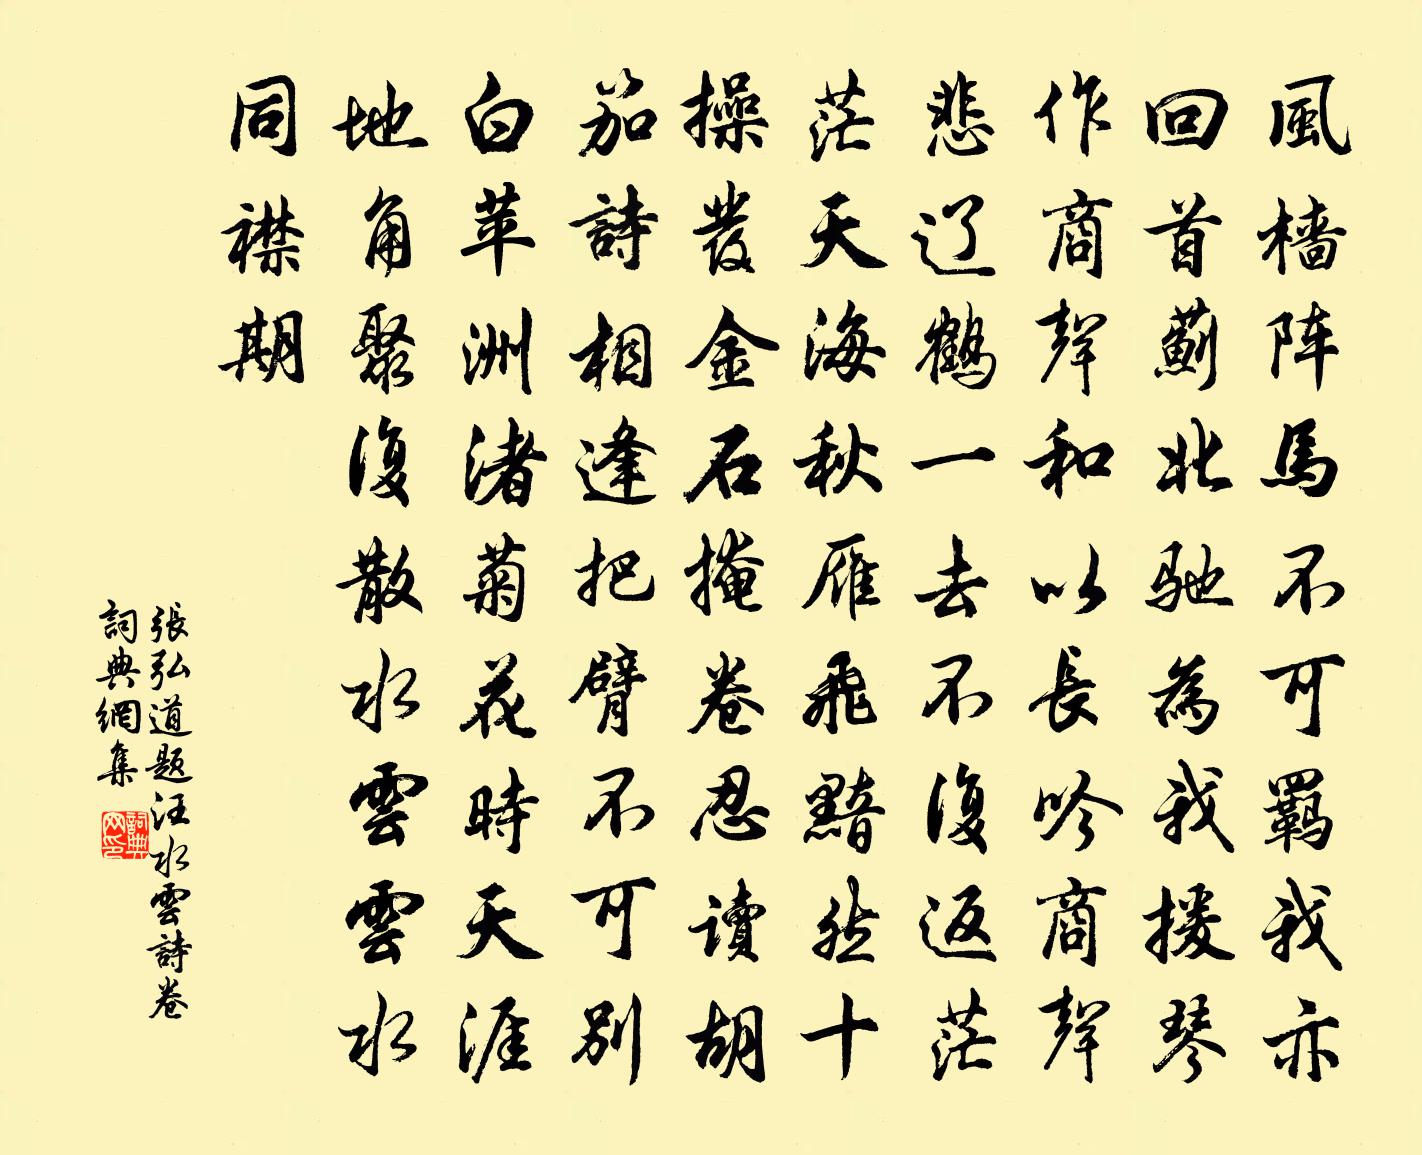 風檣阵馬不可羁我亦
回首薊北驰為我援琴
作商聲和以長吟商聲
悲辽鶴一去不復返茫
茫天海秋雁飛黯然十
操發金石掩卷忍讀胡
笳詩相逢把臂不可别
白苹洲渚菊花時天涯
地角聚復散水雲雲水
同襟期
張弘道题汪水雲詩卷
詞典網集
詞典网印